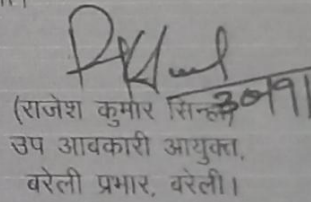 (राजेश कुमार सिन्हा)
उप आबकारी आयुक्त,
बरेली प्रभार, बरेली।